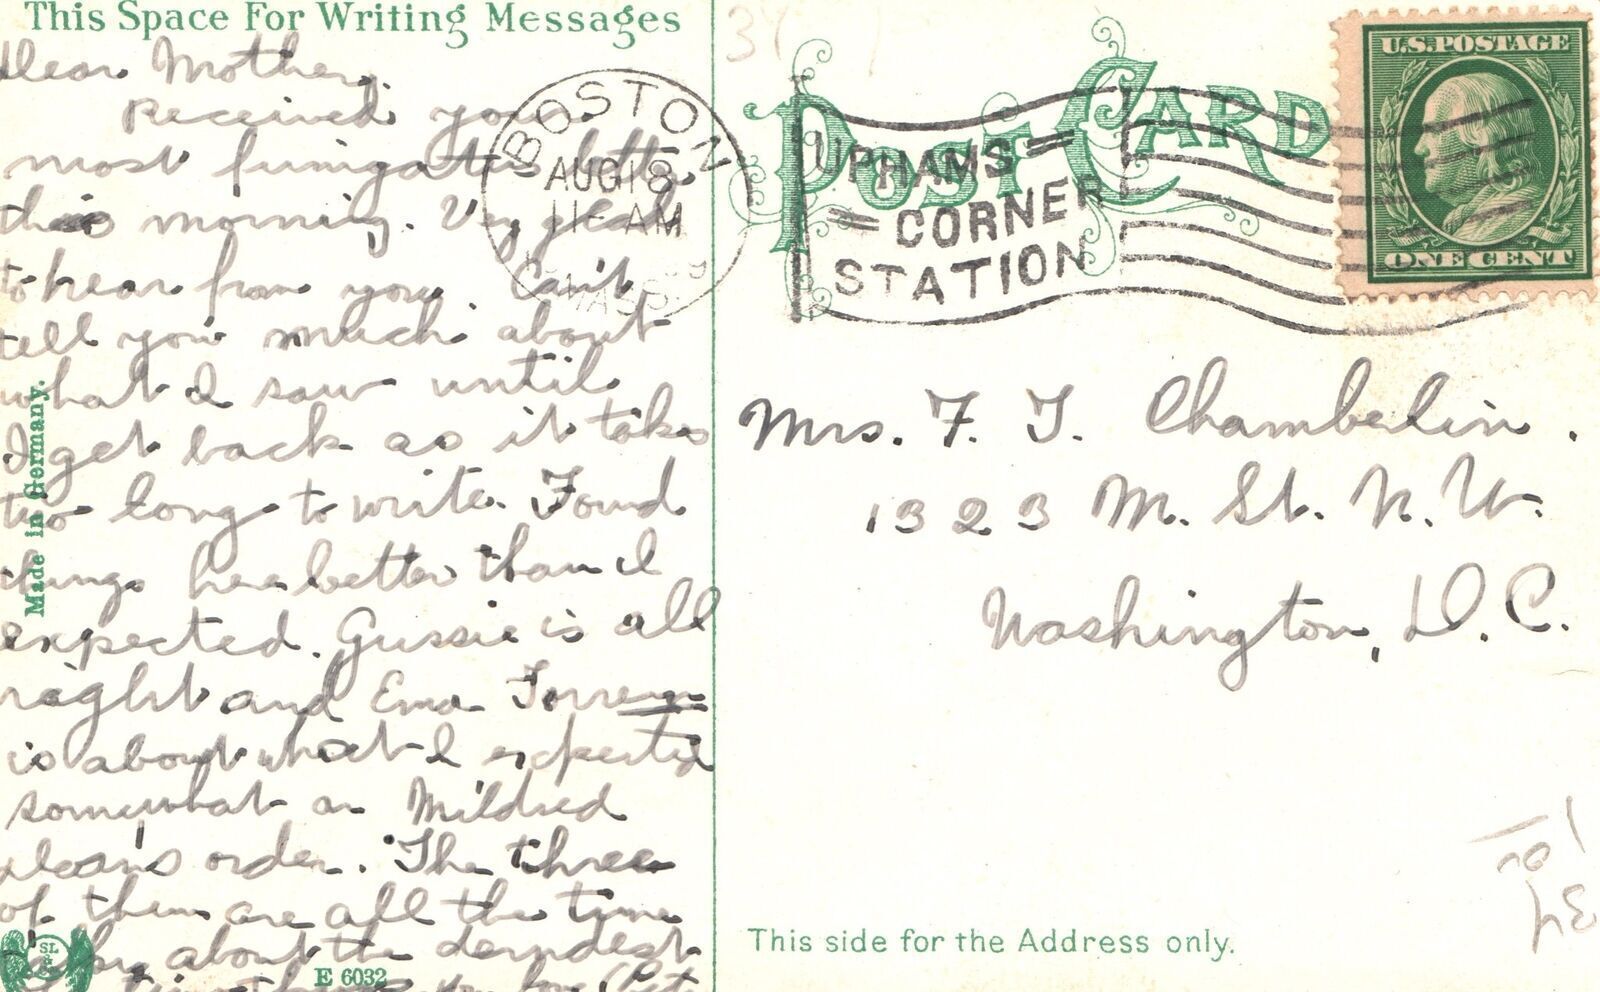 This Space For Writing Messages
Dear Mother,
Received your
most fumigated letter
this morning. Very glad
to hear from you. Can't
tell you much about
what I saw until
I get back as it takes
too long to write. Found
things here better than I
expected. Gussie is all
right and Ema
is about what I expected
somewhat on Mildred
Sloan's order. The three
of them are all the time
about the derndest
Made in Germany.
E 6032
SL
BOSTON
AUG 18
11- AM
MASS.
UPHAMS
CORNER
STATION
POST CARD
U.S. POSTAGE
ONE CENT
Mrs. F. T. Chamberlin.
1323 M. St. N. W.
Washington, D. C.
This side for the Address only.